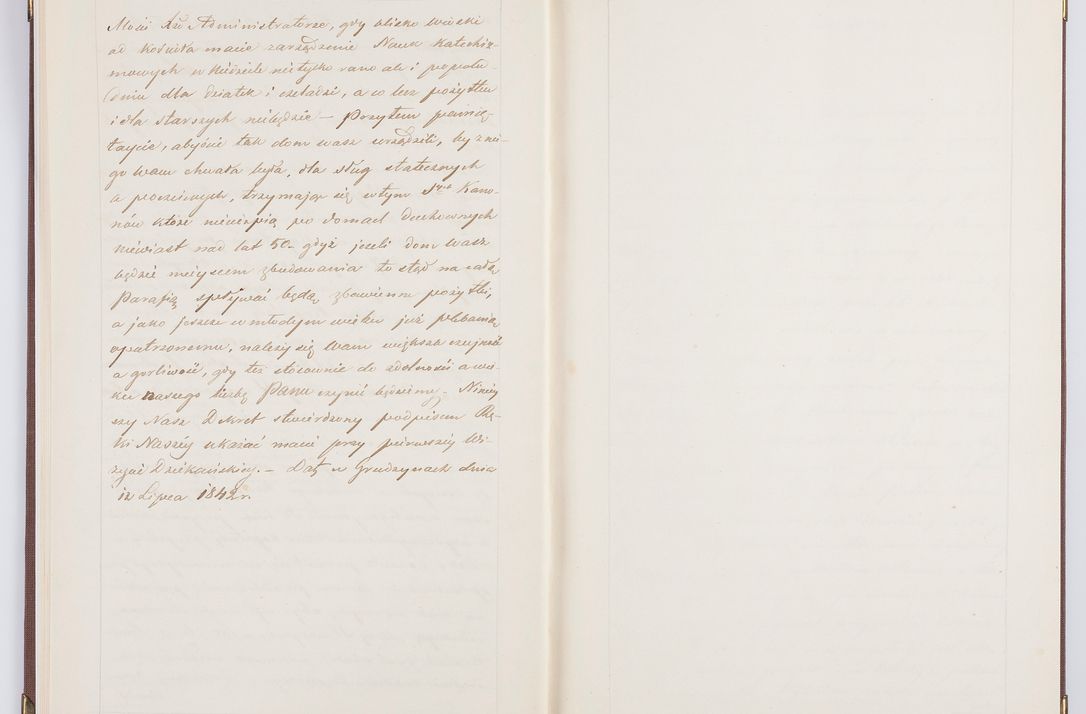 Mości Xże Administratorze, gdy blisko wioski
od Kościoła macie zarządzenie Nauk katechiz-
mowych w Niedziele nietylko rano ale i popołu-
dniu dla dziatek i czeladzi, a co bez pożytku
i dla starszych niebędzie – Przytem pamię-
taycie, abyście tak dom wasz urządzili, by z nie-
go Wam chwała była, dla sług statecznych
a poczciwych, trzymając się w tym Kano-
nów które niecierpią po domach duchownych
niewiast nad lat 50. gdyż jeżeli dom wasz
będzie mieyscem zbudowania to stąd na całą
Parafią spływać będą zbawienne pożytki,
a jako jeszcze w młodym wieku już plebanią
opatrzonemu, należy się Wam większa czujność
a gorliwość, gdy też stosownie do zdolności a wie-
ku naszego liczbę Panu czynić będziemy. Niniey
szy Nasz Dekret stwierdzony podpisem Rę-
ki Naszéy okazać macie przy pierwszéy Wi-
zycie Dziekańskiey. – Dat w Grudzynach dnia
12 Lipca 1842 r.